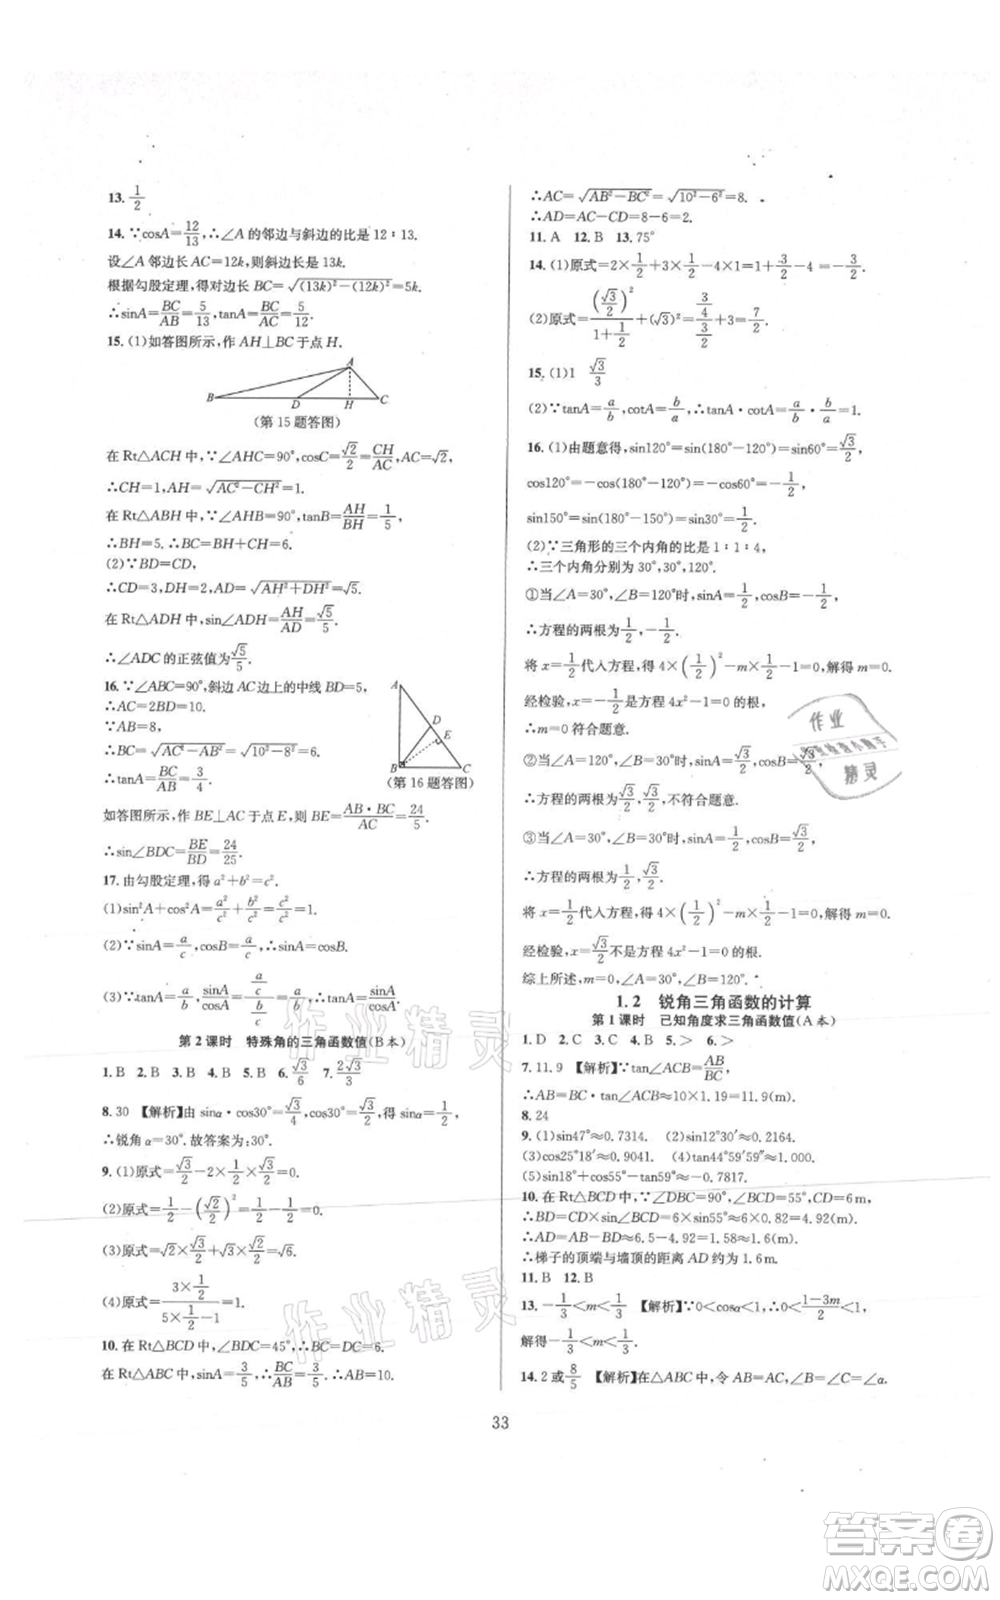 13. 1/2
14. ∵cosA=12/13,∴∠A的邻边与斜边的比是12∶13.
设∠A邻边长AC=12k,则斜边长13k.
根据勾股定理,得对边长BC=√((13k)²-(12k)²)=5k.
∴sinA=BC/AB=5/13,tanA=BC/AC=5/12.
15. (1)如答图所示,作AH⊥BC于点H.
A
B D H C
(第15题答图)
在Rt△ACH中,∵∠AHC=90°,cosC=√2/2=CH/AC,AC=√2,
∴CH=1,AH=√(AC²-CH²)=1.
在Rt△ABH中,∵∠AHB=90°,tanB=AH/BH=1/5,
∴BH=5.∴BC=BH+CH=6.
(2)∵BD=CD,
∴CD=3,DH=2,AD=√(AH²+DH²)=√5.
在Rt△ADH中,sin∠ADH=AH/AD=√5/5.
∴∠ADC的正弦值为√5/5.
16. ∵∠ABC=90°,斜边AC上的中线BD=5,
∴AC=2BD=10.
∵AB=8,
∴BC=√(AC²-AB²)=√(10²-8²)=6.
∴tanA=BC/AB=3/4.
A
D
E
B C
(第16题答图)
如答图所示,作BE⊥AC于点E,则BE=AB·BC/AC=24/5.
∴sin∠BDC=BE/BD=24/25.
17. 由勾股定理,得a²+b²=c².
(1)sin²A+cos²A=a²/c²+b²/c²=c²/c²=1.
(2)∵sinA=a/c,cosB=a/c,∴sinA=cosB.
(3)∵tanA=a/b,sinA/cosA=(a/c)/(b/c)=a/b,∴tanA=sinA/cosA.
第2课时 特殊角的三角函数值(B本)
1. B 2. B 3. B 4. B 5. B 6. √3/6 7. √3/2
8. 30 【解析】由sinα·cos30°=√3/4,cos30°=√3/2,得sinα=1/2,
∴锐角α=30°.故答案为:30°.
9. (1)原式=√3/2-2×1/2×√3/2=0.
(2)原式=1/2-(√2/2)²=1/2-1/2=0.
(3)原式=√3×√2/2+√3×√2/2=√6.
(4)原式=(3×1/2)/(5×1/2-1)=1.
10. 在Rt△BCD中,∠BDC=45°,∴BC=DC=6.
在Rt△ABC中,sinA=3/5,∴BC/AB=3/5,∴AB=10.
∴AC=√(AB²-BC²)=√(10²-6²)=8.
∴AD=AC-CD=8-6=2.
11. A 12. B 13. 75°
14. (1)原式=2×1/2+3×1/2-4×1=1+3/2-4=-3/2.
(2)原式=(√3/2)²/(1+1/2)+(√3)²=(3/4)/(3/2)+3=7/2.
15. (1)1 √3/3
(2)∵tanA=a/b,cotA=b/a,∴tanA·cotA=a/b·b/a=1.
16. (1)由题意得,sin120°=sin(180°-120°)=sin60°=√3/2,
cos120°=-cos(180°-120°)=-cos60°=-1/2,
sin150°=sin(180°-150°)=sin30°=1/2.
(2)∵三角形的三个内角的比是1∶1∶4,
∴三个内角分别为30°,30°,120°.
①当∠A=30°,∠B=120°时,sinA=1/2,cosB=-1/2,
∴方程的两根为1/2,-1/2.
将x=1/2代入方程,得4×(1/2)²-m×1/2-1=0,解得m=0.
经检验,x=-1/2是方程4x²-1=0的根,
∴m=0符合题意.
②当∠A=120°,∠B=30°时,sinA=√3/2,cosB=√3/2,
∴方程的两根为√3/2,√3/2,不符合题意.
③当∠A=30°,∠B=30°时,sinA=1/2,cosB=√3/2,
∴方程的两根为1/2,√3/2.
将x=1/2代入方程,得4×(1/2)²-m×1/2-1=0,解得m=0.
经检验,x=√3/2不是方程4x²-1=0的根.
综上所述,m=0,∠A=30°,∠B=120°.
1.2 锐角三角函数的计算
第1课时 已知角度求三角函数值(A本)
1. D 2. C 3. C 4. B 5. > 6. >
7. 11.9 【解析】∵tan∠ACB=AB/BC,
∴AB=BC·tan∠ACB=10×tan50°≈10×1.19=11.9(m).
8. 24
9. (1)sin47°≈0.7314. (2)sin12°30′≈0.2164.
(3)cos25°18′≈0.9041. (4)tan44°59′59″≈1.000.
(5)sin18°+cos55°-tan59°≈-0.7817.
10. 在Rt△BCD中,∵∠BDC=90°,∠BCD=55°,CD=6m,
∴BD=CD×sin∠BCD=6×sin55°≈4.92(m).
∴AD=AB-BD≈6.5-4.92=1.58≈1.6(m).
∴梯子的顶端与墙顶的距离AD约为1.6m.
11. B 12. B
13. -1/3<m<1/3 【解析】∵0<cosα<1,∴0<(1-3m)/2<1,
解得-1/3<m<1/3.
14. 2或8/5 【解析】在△ABC中,令AB=AC,∠B=∠C=∠α.
33
作业精灵
作业精灵
作业
精灵
答案圈
MXQE.COM